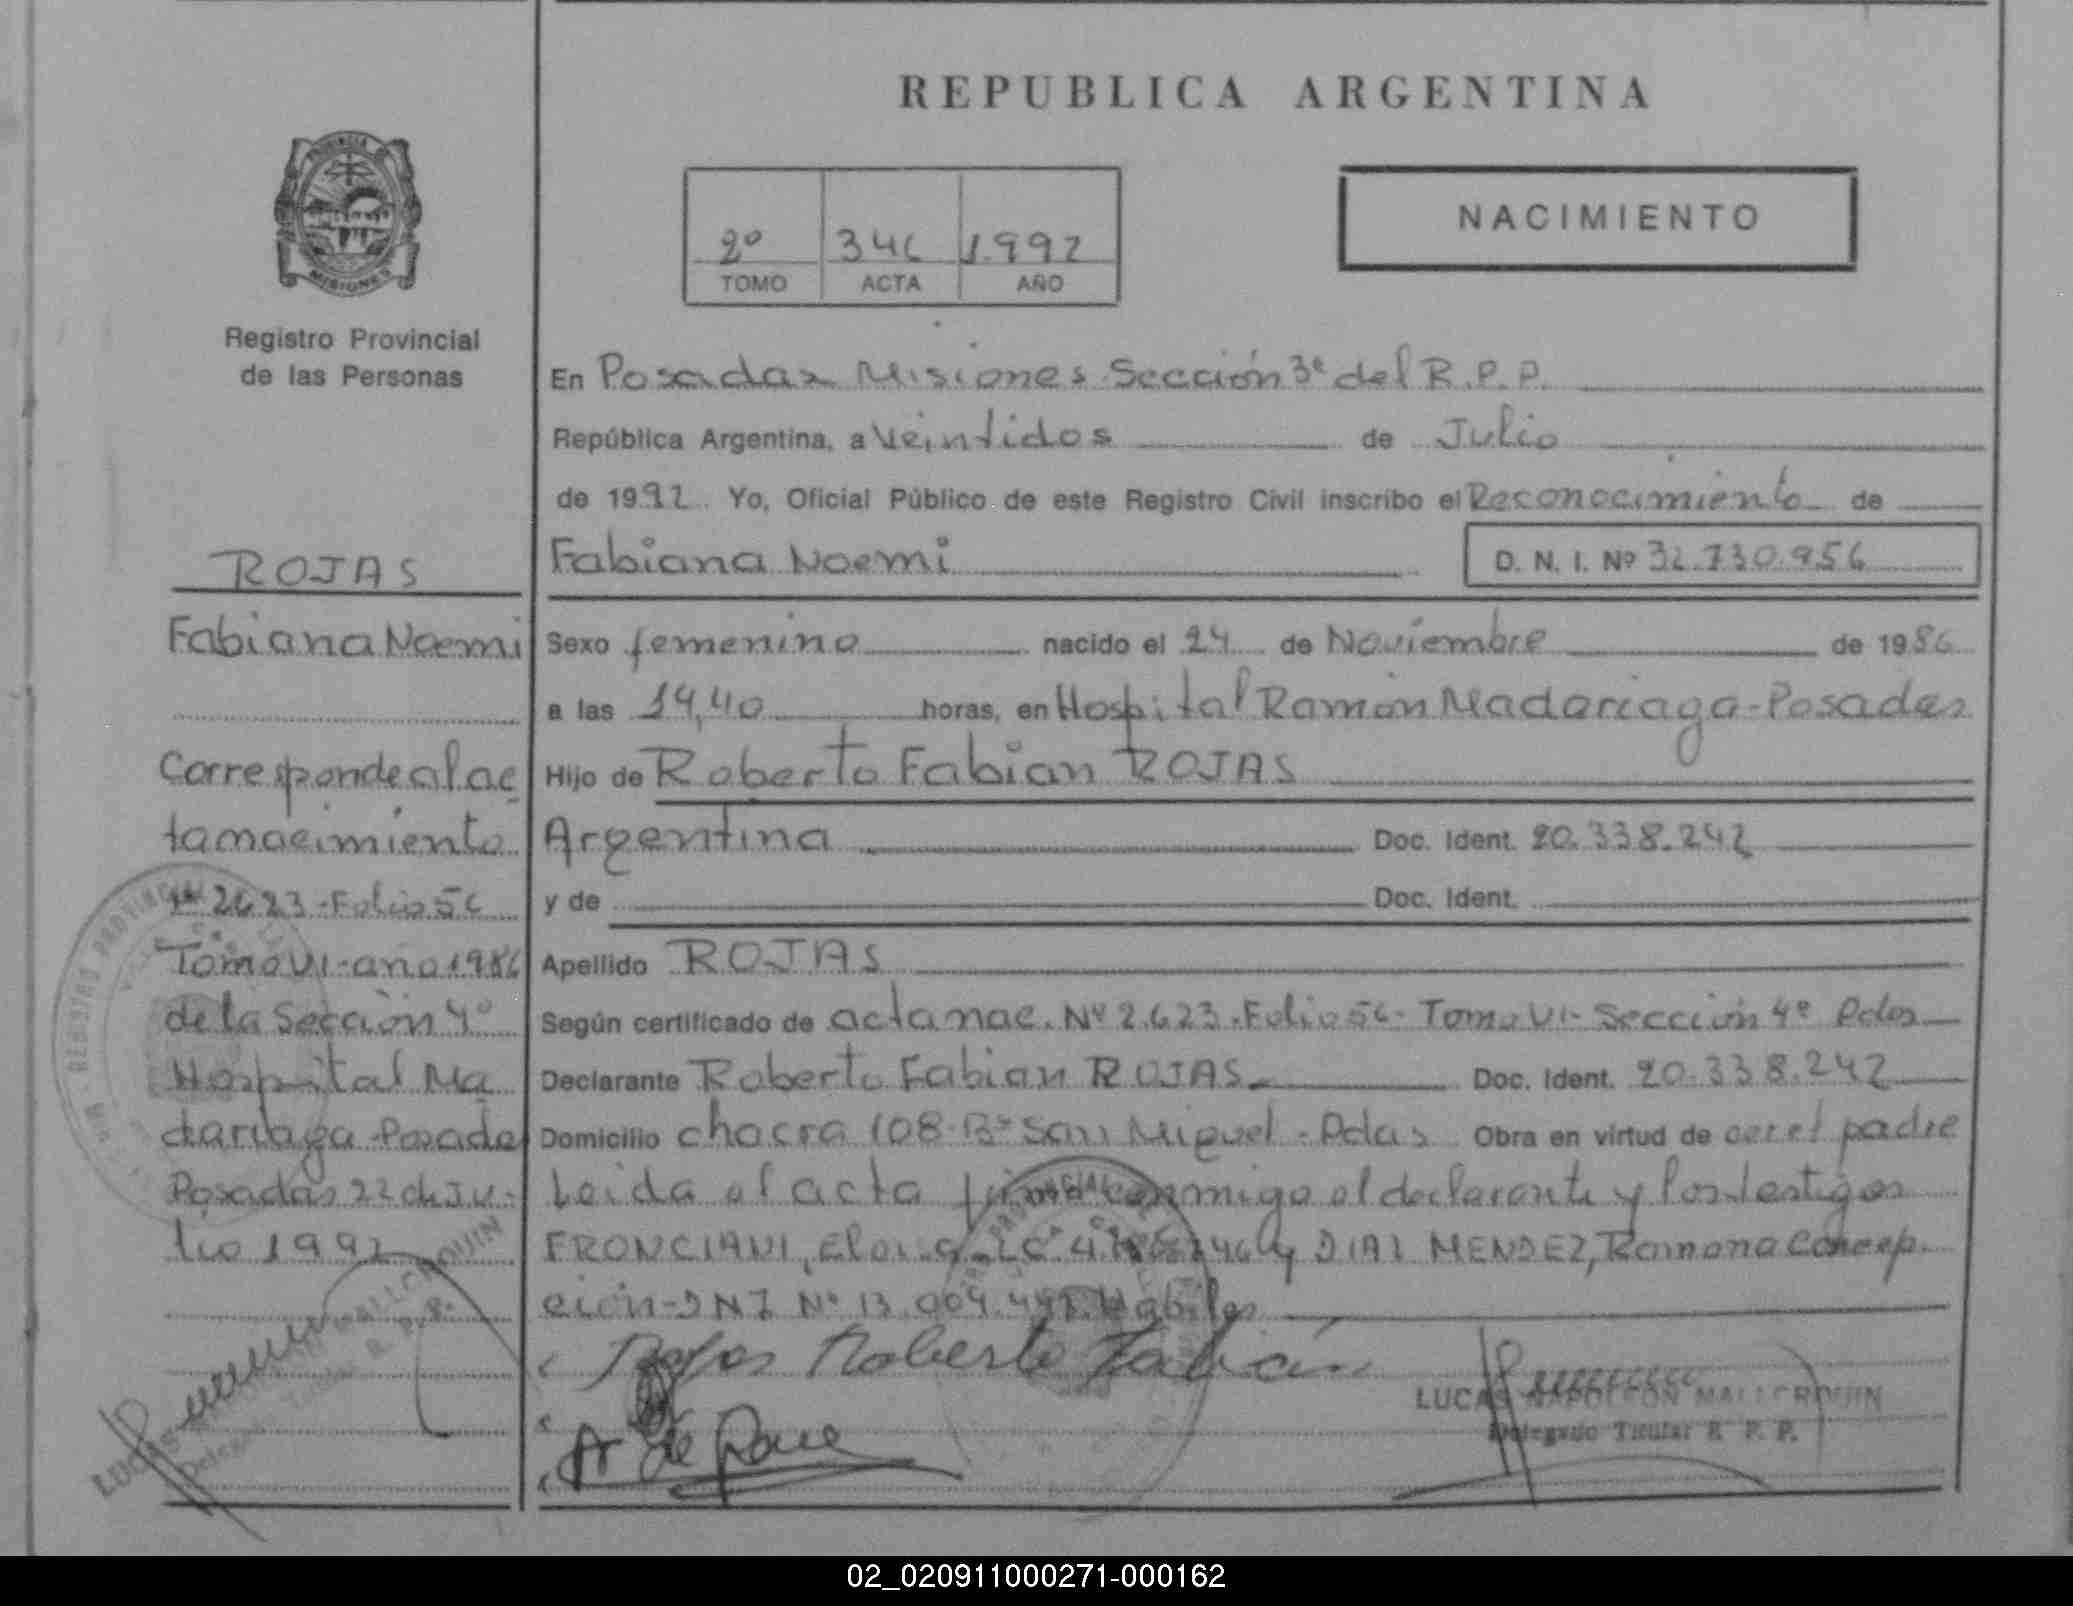 REPUBLICA ARGENTINA
NACIMIENTO
2º 346 1.992
TOMO ACTA AÑO
PROVINCIA DE
MISIONES
Registro Provincial
de las Personas
ROJAS
Fabiana Noemi
Corresponde al ac
ta nacimiento
Nº 2623 - Folio 56
Tomo VI - año 1986
de la Sección 4º
Hospital Ma
dariaga - Posadas
Posadas 22 de Ju-
lio 1992
En Posadas Misiones Sección 3ª del R.P.P.
República Argentina, a Veintidos de Julio
de 1992 Yo, Oficial Público de este Registro Civil inscribo el Reconocimiento de
Fabiana Noemi D. N. I. Nº 32.730.956
Sexo femenino nacido el 24 de Noviembre de 1986
a las 14,40 horas, en Hospital Ramón Madariaga - Posadas
Hijo de Roberto Fabian ROJAS
Argentina Doc. Ident. 20.338.242
y de Doc. Ident.
Apellido ROJAS
Según certificado de acta nac. Nº 2.623 - Folio 56 - Tomo VI - Sección 4ª Pdas
Declarante Roberto Fabian ROJAS Doc. Ident. 20.338.242
Domicilio chacra 108 - Bº San Miguel - Pdas Obra en virtud de ser el padre
Leida el acta firma conmigo el declarante y los testigos
y DIAZ MENDEZ, Ramona Concep-
ción - DNI Nº 13.004. Habiles
Rojas Roberto Fabián
LUCAS NAPOLEON MALLORQUIN
Delegado Titular R. P. P.
LUCAS MALLORQUIN
Delegado Titular R. P. P.
02_020911000271-000162